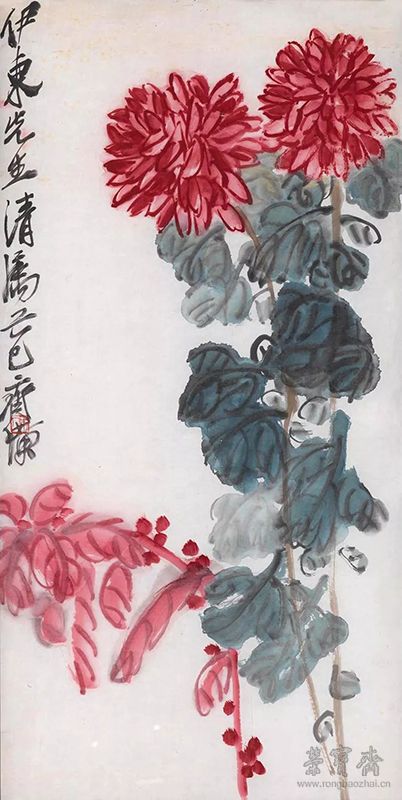 伊東先生清屬己巳齊璜
榮寶齋
www.rongbaozhai.cn